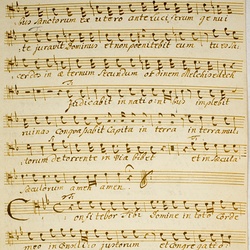 bus Sanctorum ex utero ante luciferum genui
te juravit Dominus et non poenitebit eum tu es Sa
cerdos in æternum Secundum ordinem Melchisedech
Judicabit in nationibus implebit
ruinas Conquasabit Capita in terra in terra mul
torum de torrente in via bibet et in Sæcula
Sæculorum amen amen.
Confitebor tibi Domine in toto Corde
meo in Consilio justorum et Congregatio